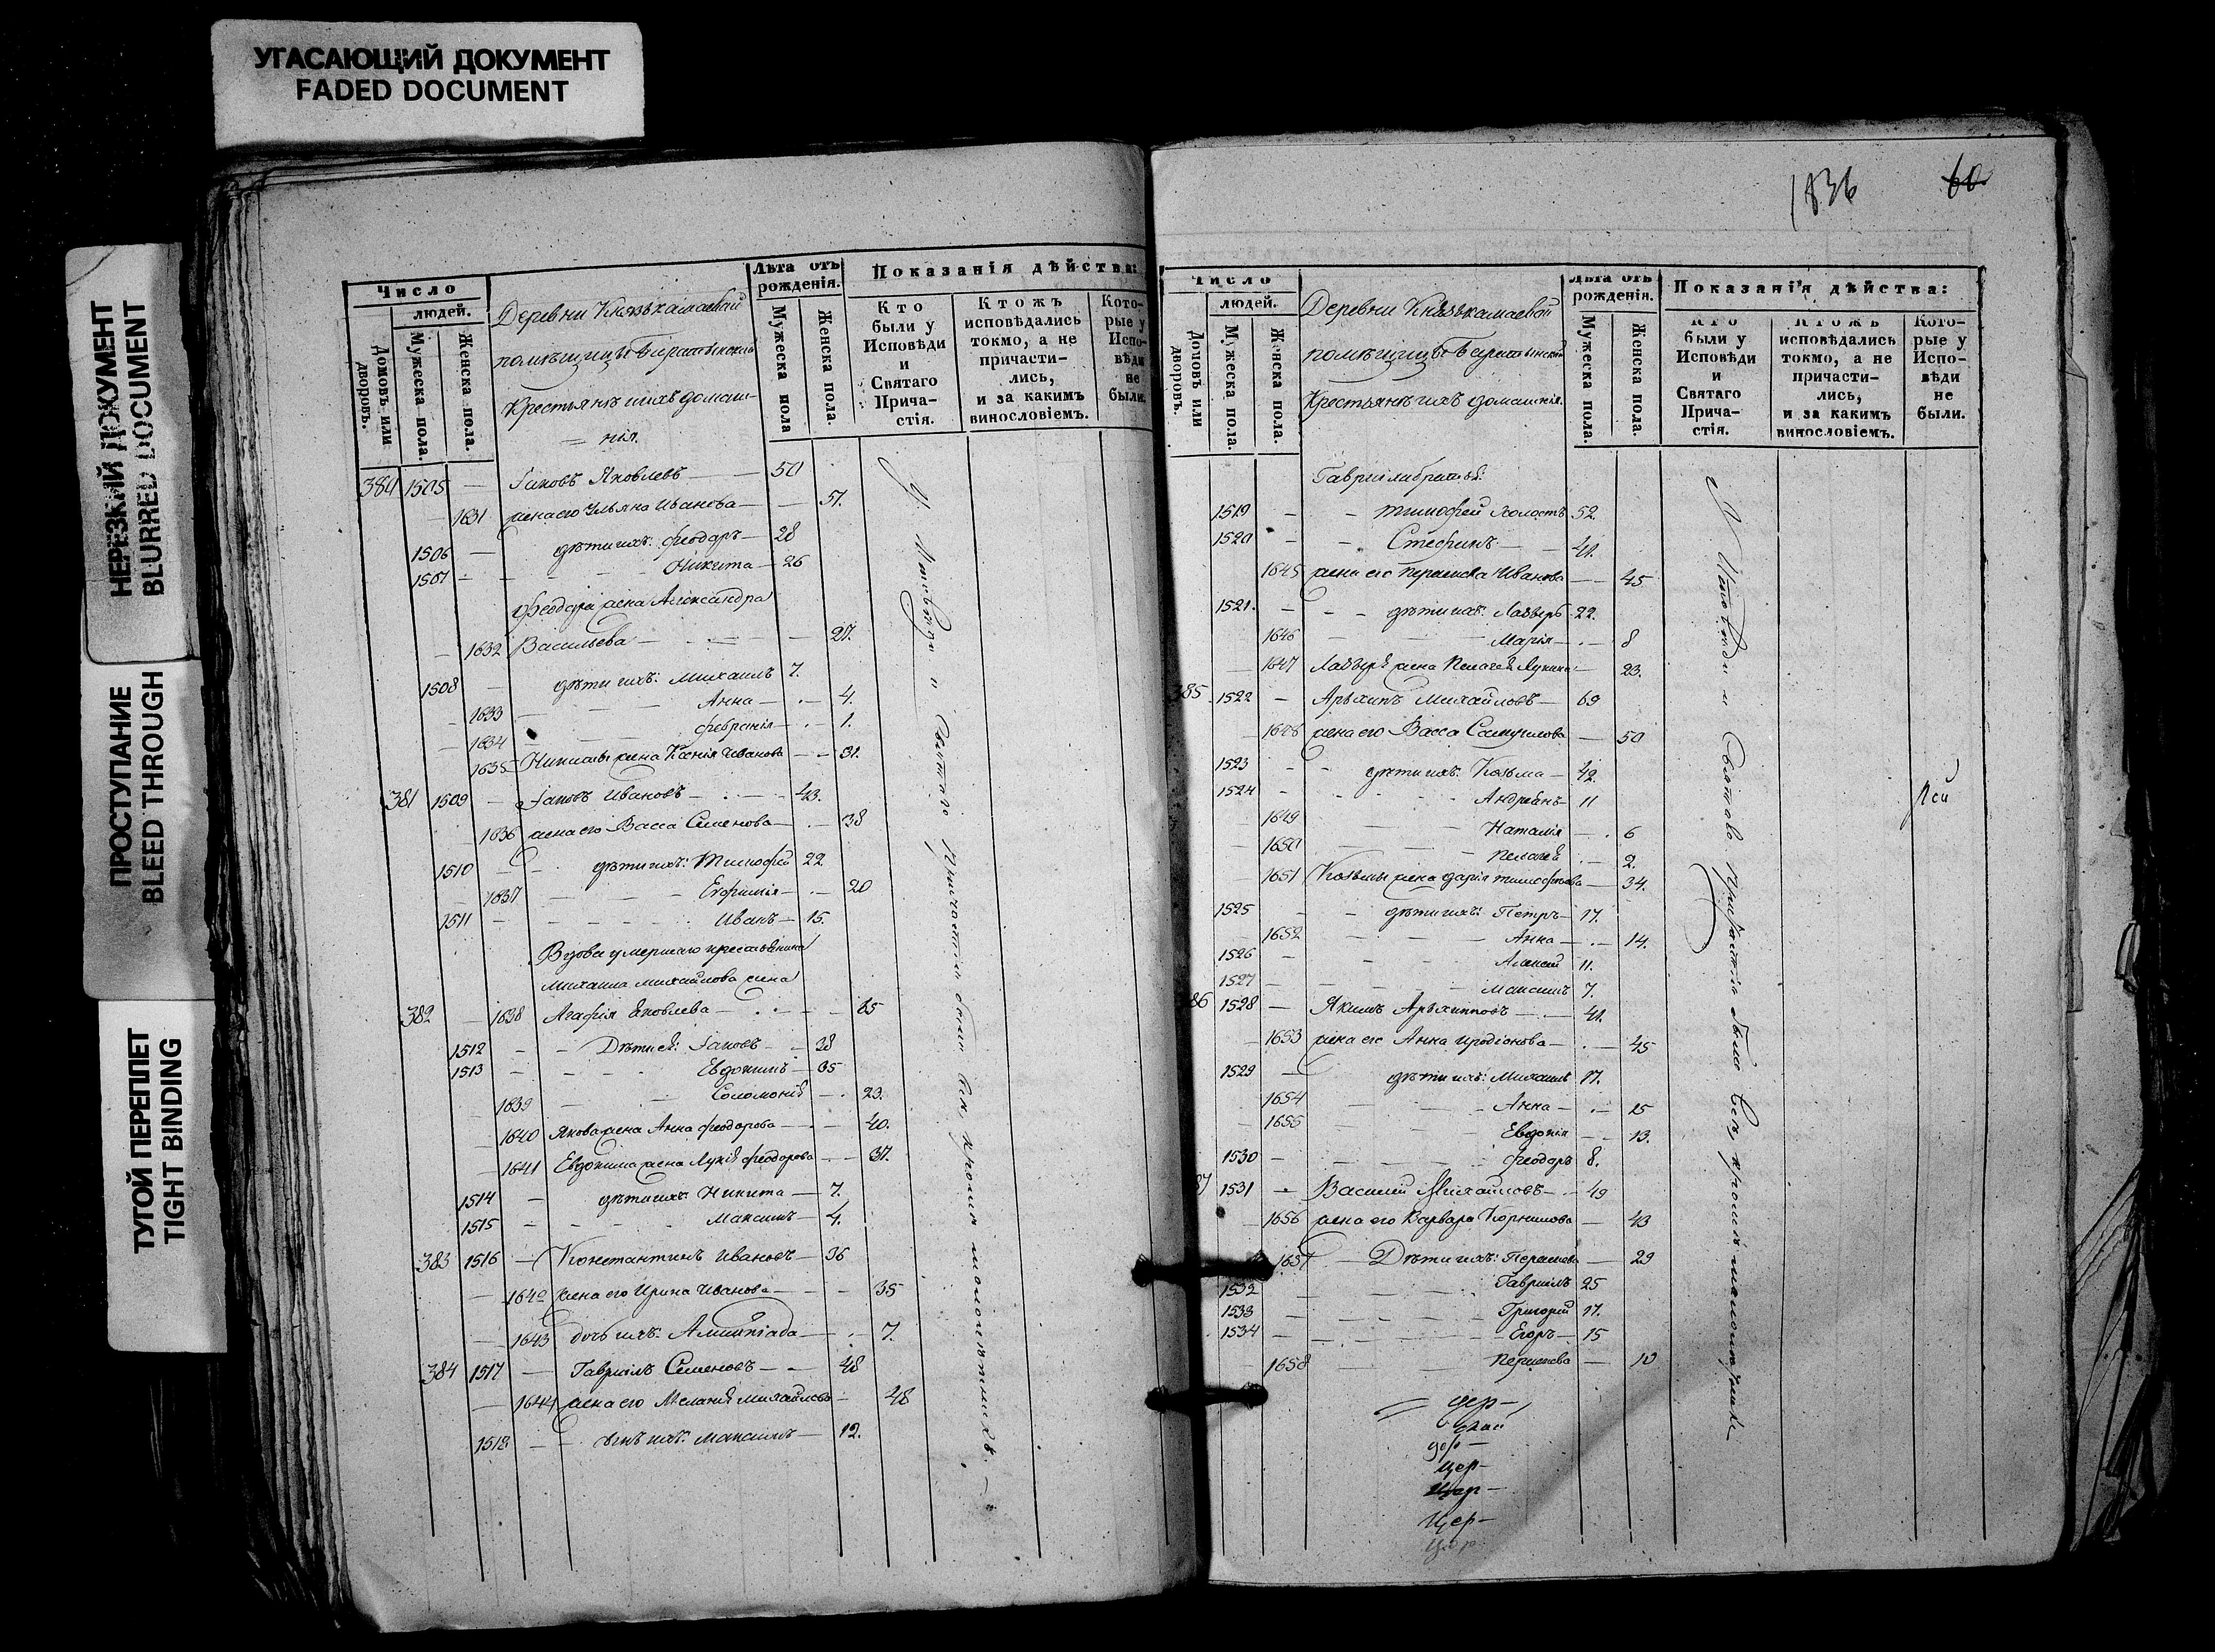 УГАСАЮЩИЙ ДОКУМЕНТ
FADED DOCUMENT
НЕРЕЗКИЙ ДОКУМЕНТ
BLURRED DOCUMENT
ПРОСТУПАНИЕ
BLEED THROUGH
ТУГОЙ ПЕРЕПЛЕТ
TIGHT BINDING
Число
людей.
Домовъ или дворовъ.
Мужеска пола.
Женска пола.
Деревни Князькамаевой
помѣщицы
Крестьянѣ ихъ домаш-
нія.
Лѣта отъ рожденія.
Мужеска пола
Женска пола.
Показанія дѣйства:
Кто были у Исповѣди и Святаго Прича-стія.
Ктожъ исповѣдались токмо, а не причасти-лись, и за какимъ винословіемъ.
Кото-рые у Испо-вѣди не были.
1505 — Іаковъ Яковлевъ — 50
1631 жена его Ульяна Иванова — 51.
1506 — дѣти ихъ: Феодоръ — 28
1507 — Никита — 26
Феодора жена Александра
1632 Васильева — 27.
1508 — дѣти ихъ: Михаилъ 7.
1633 Анна — 4.
1634 Февронія — 1.
1635 Никиты жена Ксенія Иванова — 31.
381 1509 — Іаковъ Ивановъ — 43.
1636 жена его Васса Семенова — 38
1510 — дѣти ихъ: Тимофей 22
1637 Евфимія — 20
1511 — Иванъ — 15.
Вдова умершаго крестьянина
Михаила Михайлова жена
382 1638 Агафія Яковлева — 65
1512 — Дѣти ей: Іаковъ — 38
1513 — Евдокимъ — 35
1639 Соломонія — 23.
1640 Якова жена Анна Феодорова — 40.
1641 Евдокима жена Лукія Феодорова — 37.
1514 — дѣти ихъ: Никита — 7.
1515 — Максимъ — 4.
383 1516 — Константинъ Ивановъ — 36
1642 жена его Ирина Иванова — 35
1643 дочь ихъ: — 7.
384 1517 — Гавріилъ Семеновъ — 48
1644 жена его Меланія Михайлова — 48
1518 — сынъ ихъ: Максимъ — 12.
У Исповѣди и Святаго Причастія были всѣ кромѣ малолѣтныхъ. —
1836
60
Число
людей.
Домовъ или дворовъ.
Мужеска пола.
Женска пола.
Деревни Князькамаевой
помѣщицы
Крестьянѣ ихъ домашнія.
Лѣта отъ рожденія.
Мужеска пола.
Женска пола.
Показанія дѣйства:
Кто были у Исповѣди и Святаго Прича-стія.
Ктожъ исповѣдались токмо, а не причасти-лись, и за какимъ винословіемъ.
Кото-рые у Испо-вѣди не были.
Гавріила братья:
1519 — Тимофей холостъ 52.
1520 — Стефанъ — 41.
1645 жена его Парасковья Иванова — 45
1521. — дѣти ихъ: Лазарь 22.
1646 Марія — 8
1647 Лазаря жена Пелагея — 23.
385 1522 — Архипъ Михайловъ — 69
1648 жена его Васса Самуилова — 50
1523 — дѣти ихъ: Козьма — 42
1524 — Андреянъ — 11
1649 Наталія — 6
1650 Пелагея — 2.
1651 Козьмы жена Дарія Тимофеева — 34.
1525 — дѣти ихъ: Петръ — 17.
1652 Анна — 14.
1526 — Алексей 11.
1527 — Максимъ 7.
386 1528 — Якимъ Архиповъ — 41.
1653 жена его Анна Иродіонова — 45
1529 — дѣти ихъ: Михаилъ 17.
1654 Анна — 15
1655 Евдокія — 13.
1530 — Феодоръ 8.
87 1531 — Василій Михайловъ — 49
1656 жена его Варвара Корнилова — 43
1657 — Дѣти ихъ: Парасковья — 29
1532 — Гавріилъ 25
1533 — Григорій 17.
1534 — Егоръ — 15
1658 Парасковья — 10
У Исповѣди и Святаго Причастія были всѣ, кромѣ малолѣтныхъ
дер —
Цер —
Цер —